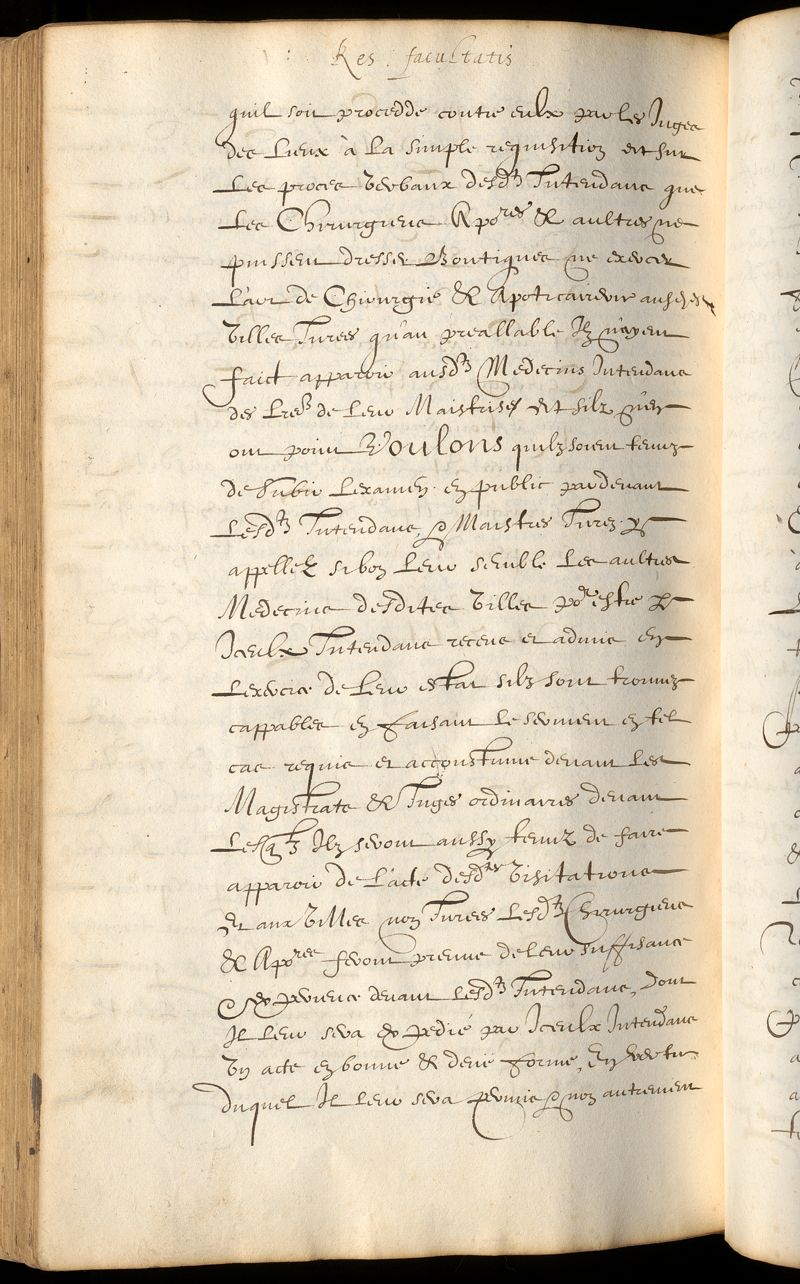 Res facultatis
quil soit procedde contre eulx par les Juges
des Lieux à La simple requisition et sur
Les proces verbaux desd.tz Intendans que
Les Chirurgiens Apo.res & aultres ne
puissent dresser Boutiques ne exercer
L'art de Chirurgie & Apoticairerie ausd.
villes Jurees qu'au preallable Ilz n'ayent
faict apparoir ausd.tz Medecins Intendans
des Lres de Leur Maistrise Et silz n'en
ont point Voulons quilz soient tenuz
de Subir Lexamen en public pardevant
Lesd.tz Intendans, & Maistres Jurez
appellez si bon Leur semble Les aultres
Medecins desdites villes po.r estre p
Iceulx Intendans receus et admis en
Lexercice de Leur estat silz sont trouvez
cappables en faisant Le serment en tel
cas requis et accoustume devant Les
Magistrats & Juges ordinaires devant
Lesq.lz Ilz seront aussy tenuz de faire
apparoir de L'acte desd.tes visitations
Et aux villes non Jurees Lesd.tz Chirurgiens
& Apo.res feront preuve de leur suffisance
& experience devant Lesd.tz Intendans, Dont
Il Leur sera expedié par Iceulx Intendans
Un acte en bonne & deue forme, En vertu
duquel Il Leur sera permis & non autrement